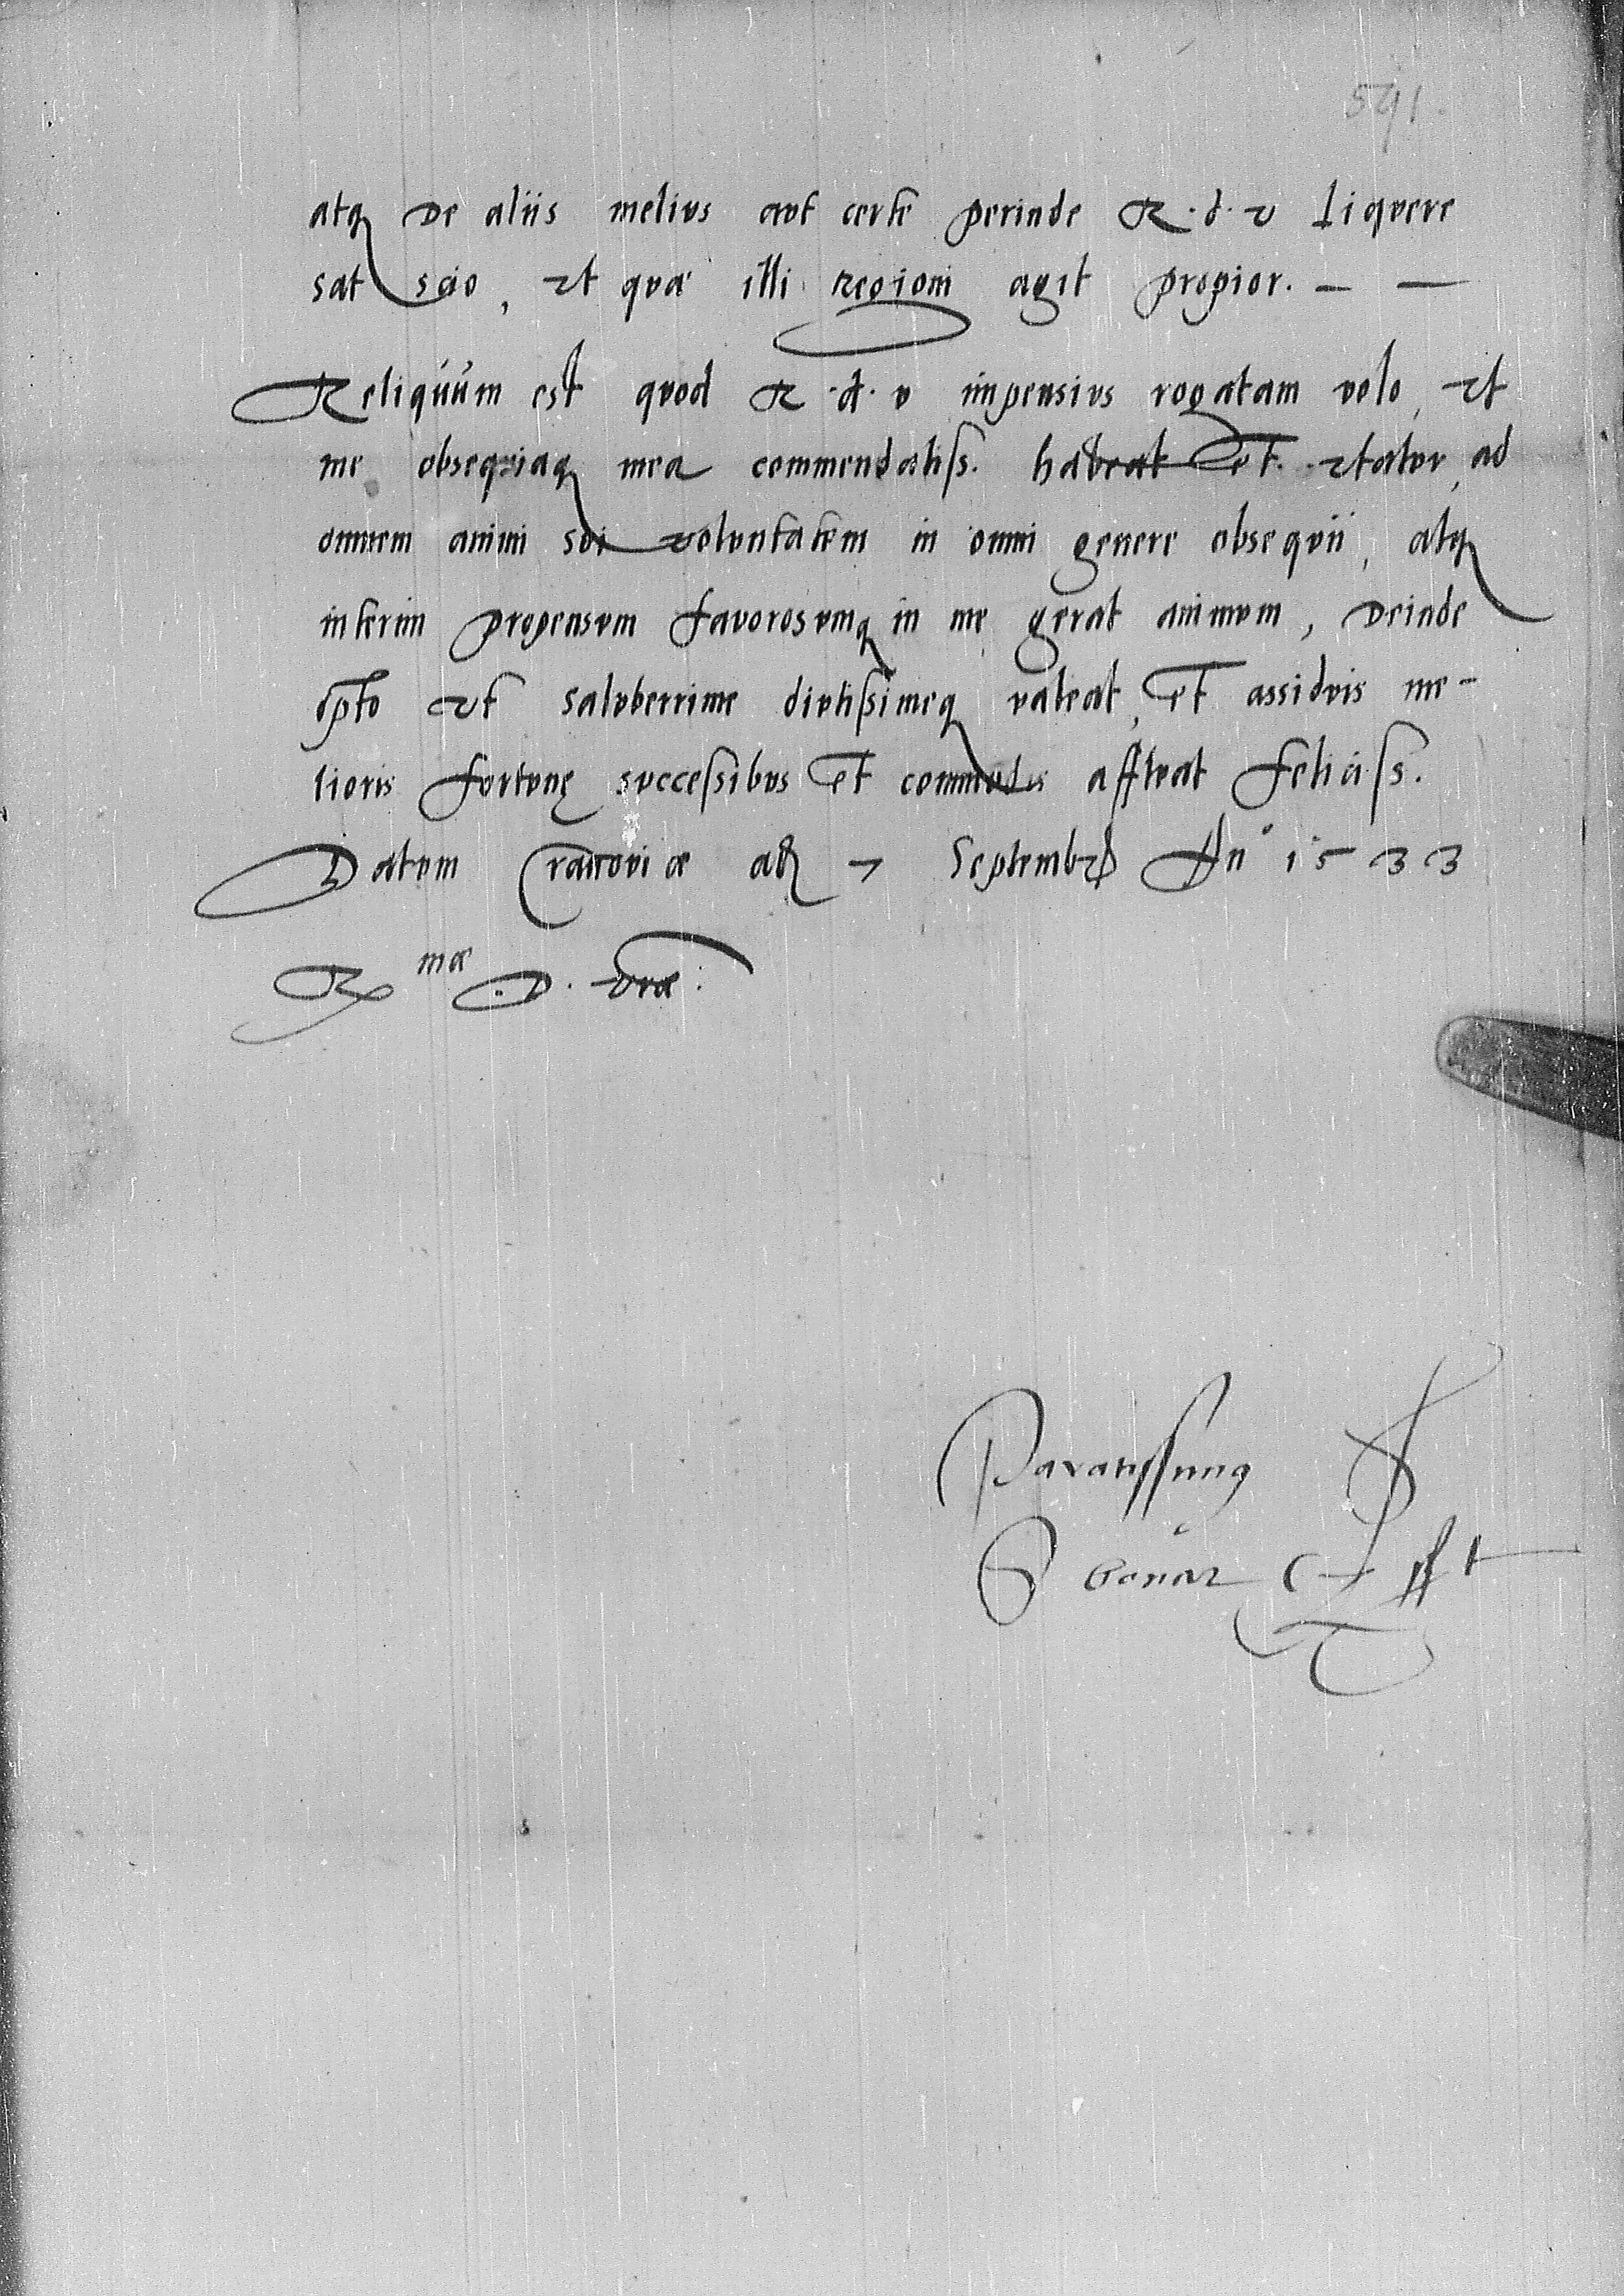 591.
atq de aliis melius aut certe perinde R. d. v liquere
sat scio, ut quae illi regioni agit propior. — —
Reliquum est quod R. d. v impensius rogatam volo, ut
me obsequiaq mea commendatiss. habeat et utatur, ad
omnem animi sui voluntatem in omni genere obsequii, atq
interim propensum favorosumq in me gerat animum, deinde
opto ut saluberrime diutissimeq valeat, et assiduis me-
lioris fortunę successibus et commodis affluat feliciss.
Datum Cracoviæ 7 Septembr An° 1533
R mae D. vrae.
Paratissimus
S Bonar